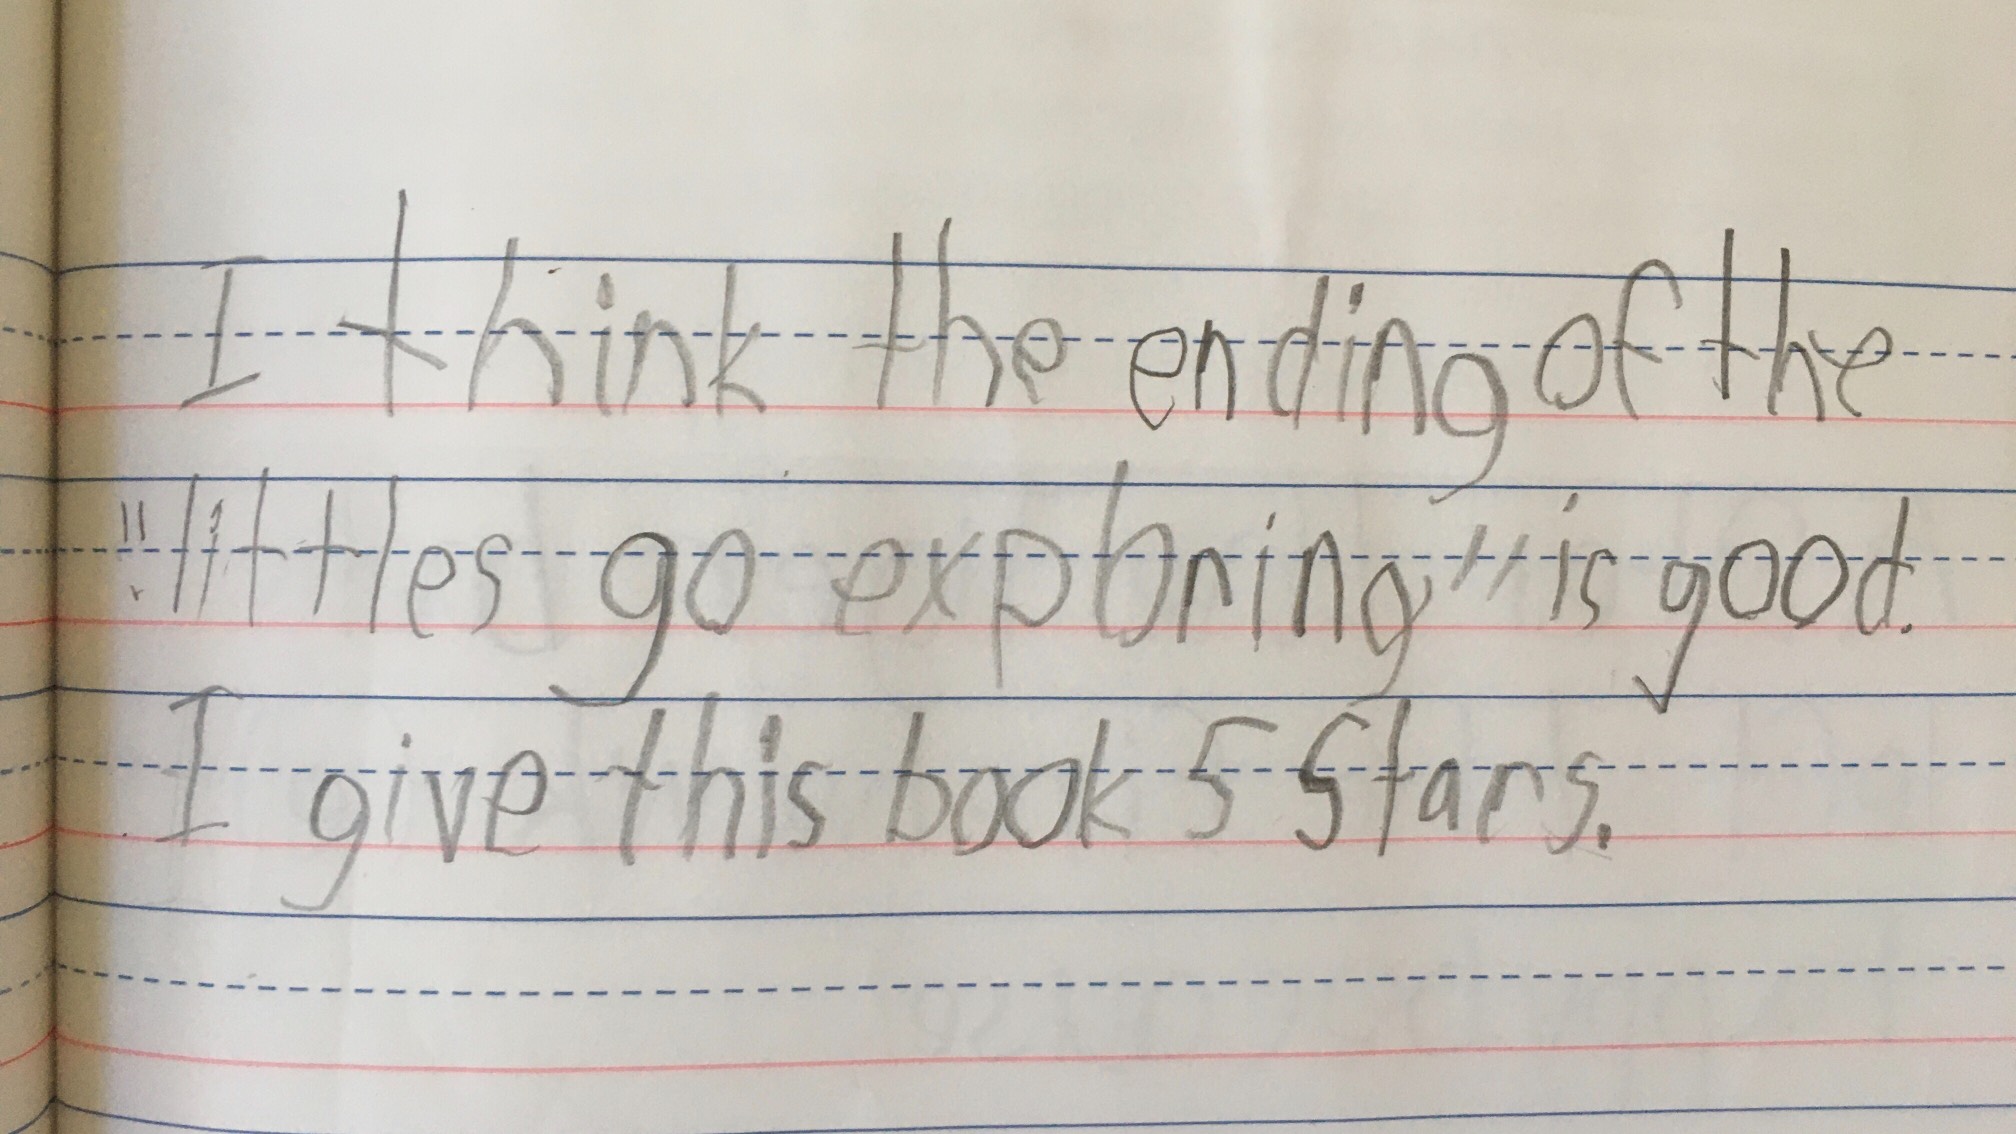 I think the ending of the
"littles go exploring" is good.
I give this book 5 Stars.